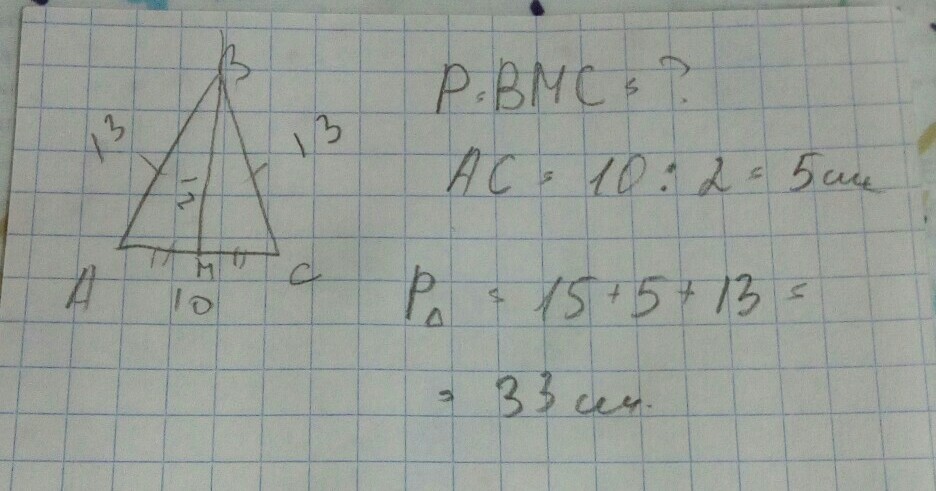 B
13
13
A
M
C
10
P.BMC = ?
AC = 10 : 2 = 5 см
P△ = 15 + 5 + 13 =
= 33 см.